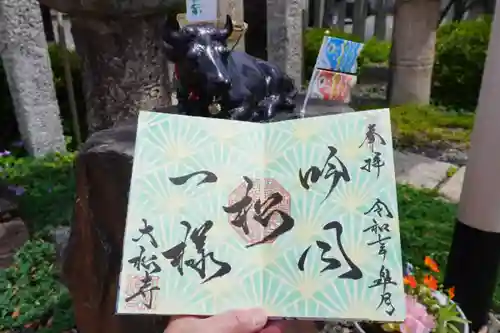 奉拝
令和 皐月
吟風
松
一様
大松寺